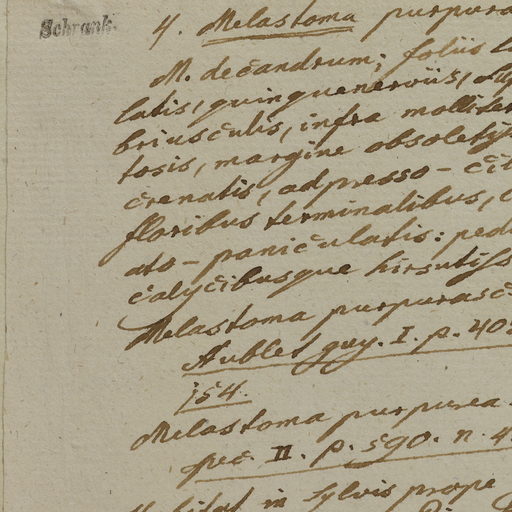 Schrank.
4. Melastoma purpura
M. decandrum; foliis
latis, quinquenerviis,
briusculis, infra molliter
tosis, margine obsolet
crenatis, adpresso-ci
floribus terminalibus,
ato-paniculatis: ped
calycibusque hirsutiss
Melastoma purpurasc
Aublet guy. I. p. 40
154.
Melastoma purpurea.
pec II. p. 590. n. 4
in sylvis prope